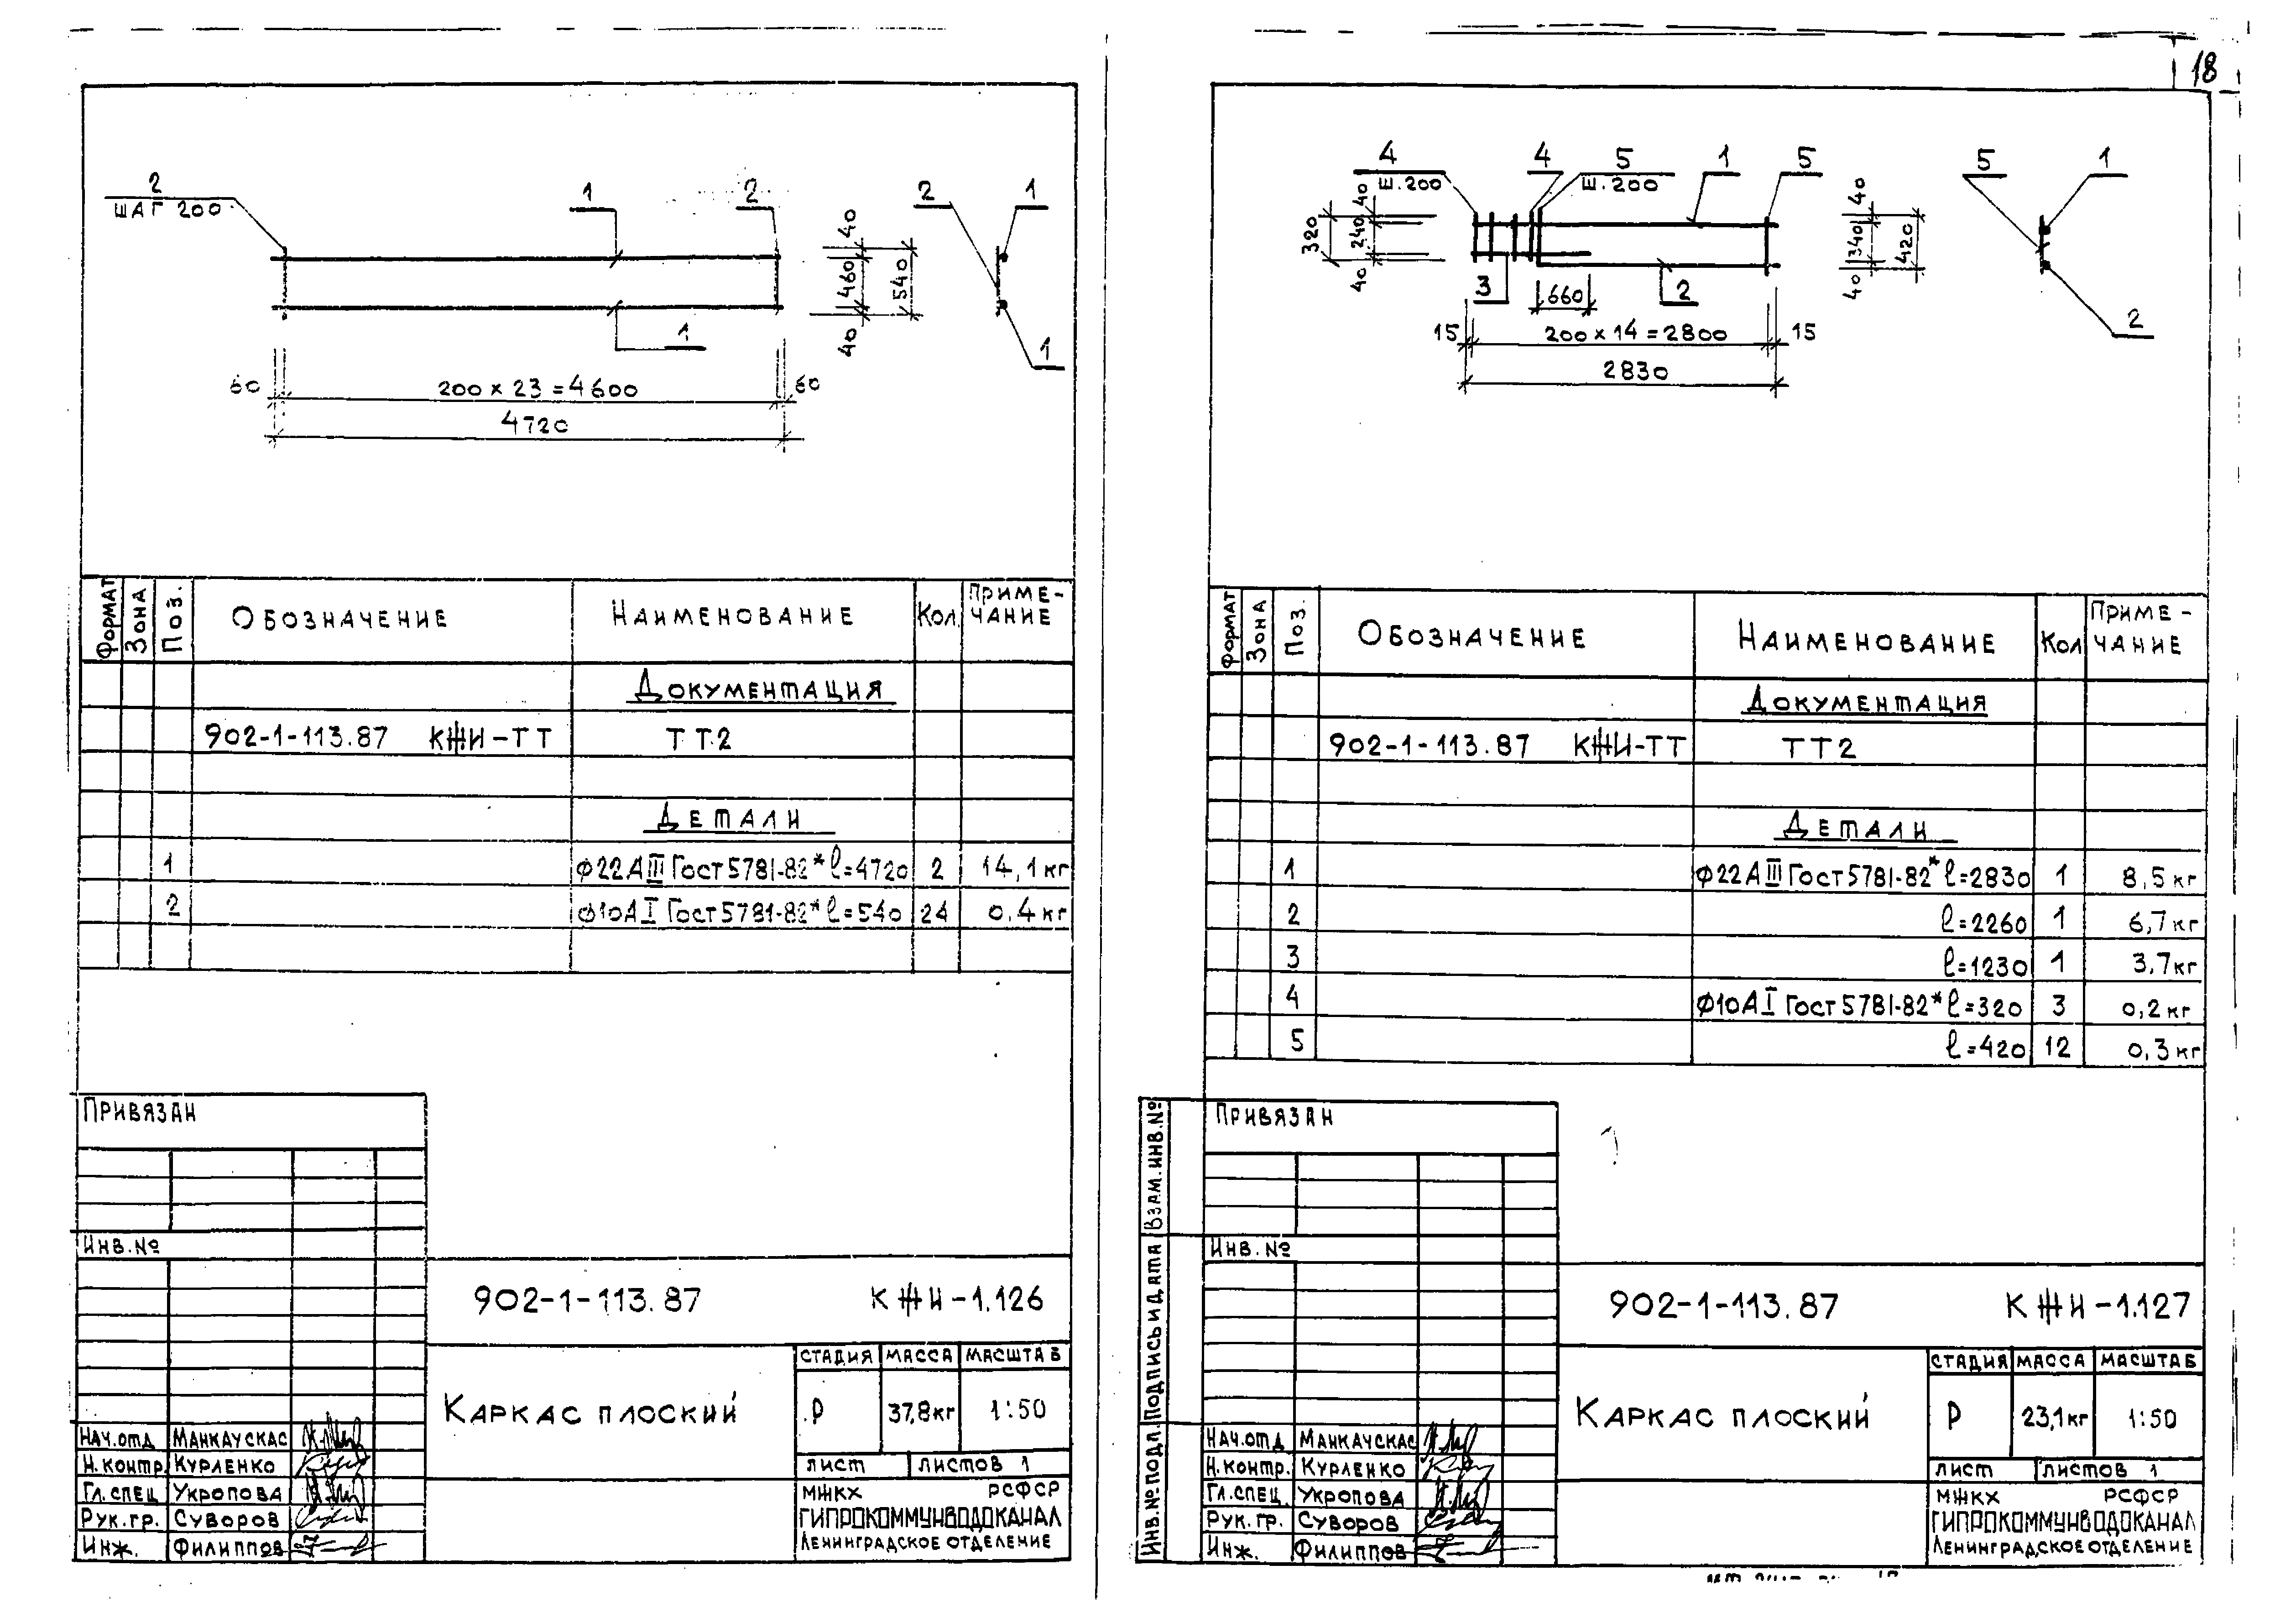 18
2
ШАГ 200
1
2
2
1
1
1
40
460
540
40
60
200 x 23 = 4600
60
4720
ФОРМАТ
ЗОНА
ПОЗ.
ОБОЗНАЧЕНИЕ
НАИМЕНОВАНИЕ
КОЛ.
ПРИМЕ-
ЧАНИЕ
ДОКУМЕНТАЦИЯ
902-1-113.87 КЖИ-ТТ ТТ2
ДЕТАЛИ
1 Ф22АIII ГОСТ 5781-82* l=4720 2 14,1 кг
2 Ф10АI ГОСТ 5781-82* l=540 24 0,4 кг
ПРИВЯЗАН
ИНВ. №
902-1-113.87 КЖИ-1.126
КАРКАС ПЛОСКИЙ
СТАДИЯ МАССА МАСШТАБ
Р 37,8 кг 1:50
ЛИСТ ЛИСТОВ 1
МЖКХ РСФСР
ГИПРОКОММУНВОДОКАНАЛ
ЛЕНИНГРАДСКОЕ ОТДЕЛЕНИЕ
НАЧ.ОТД МАНКАУСКАС
Н.КОНТР. КУРЛЕНКО
ГЛ.СПЕЦ УКРОПОВА
РУК.ГР. СУВОРОВ
ИНЖ. ФИЛИППОВ
4
Ш.200
4
5
Ш.200
1
5
5
1
2
320
40
240
40
3
660
2
40
340
40
420
15
200 x 14 = 2800
15
2830
ФОРМАТ
ЗОНА
ПОЗ.
ОБОЗНАЧЕНИЕ
НАИМЕНОВАНИЕ
КОЛ
ПРИМЕ-
ЧАНИЕ
ДОКУМЕНТАЦИЯ
902-1-113.87 КЖИ-ТТ ТТ2
ДЕТАЛИ
1 Ф22АIII ГОСТ 5781-82* l=2830 1 8,5 кг
2 l=2260 1 6,7 кг
3 l=1230 1 3,7 кг
4 Ф10АI ГОСТ 5781-82* l=320 3 0,2 кг
5 l=420 12 0,3 кг
ПРИВЯЗАН
ИНВ. №
ВЗАМ.ИНВ.№
ПОДПИСЬ И ДАТА
ИНВ.№ПОДЛ.
902-1-113.87 КЖИ-1.127
КАРКАС ПЛОСКИЙ
СТАДИЯ МАССА МАСШТАБ
Р 23,1 кг 1:50
ЛИСТ ЛИСТОВ 1
МЖКХ РСФСР
ГИПРОКОММУНВОДОКАНАЛ
ЛЕНИНГРАДСКОЕ ОТДЕЛЕНИЕ
НАЧ.ОТД МАНКАУСКАС
Н.КОНТР. КУРЛЕНКО
ГЛ.СПЕЦ. УКРОПОВА
РУК.ГР. СУВОРОВ
ИНЖ. ФИЛИППОВ